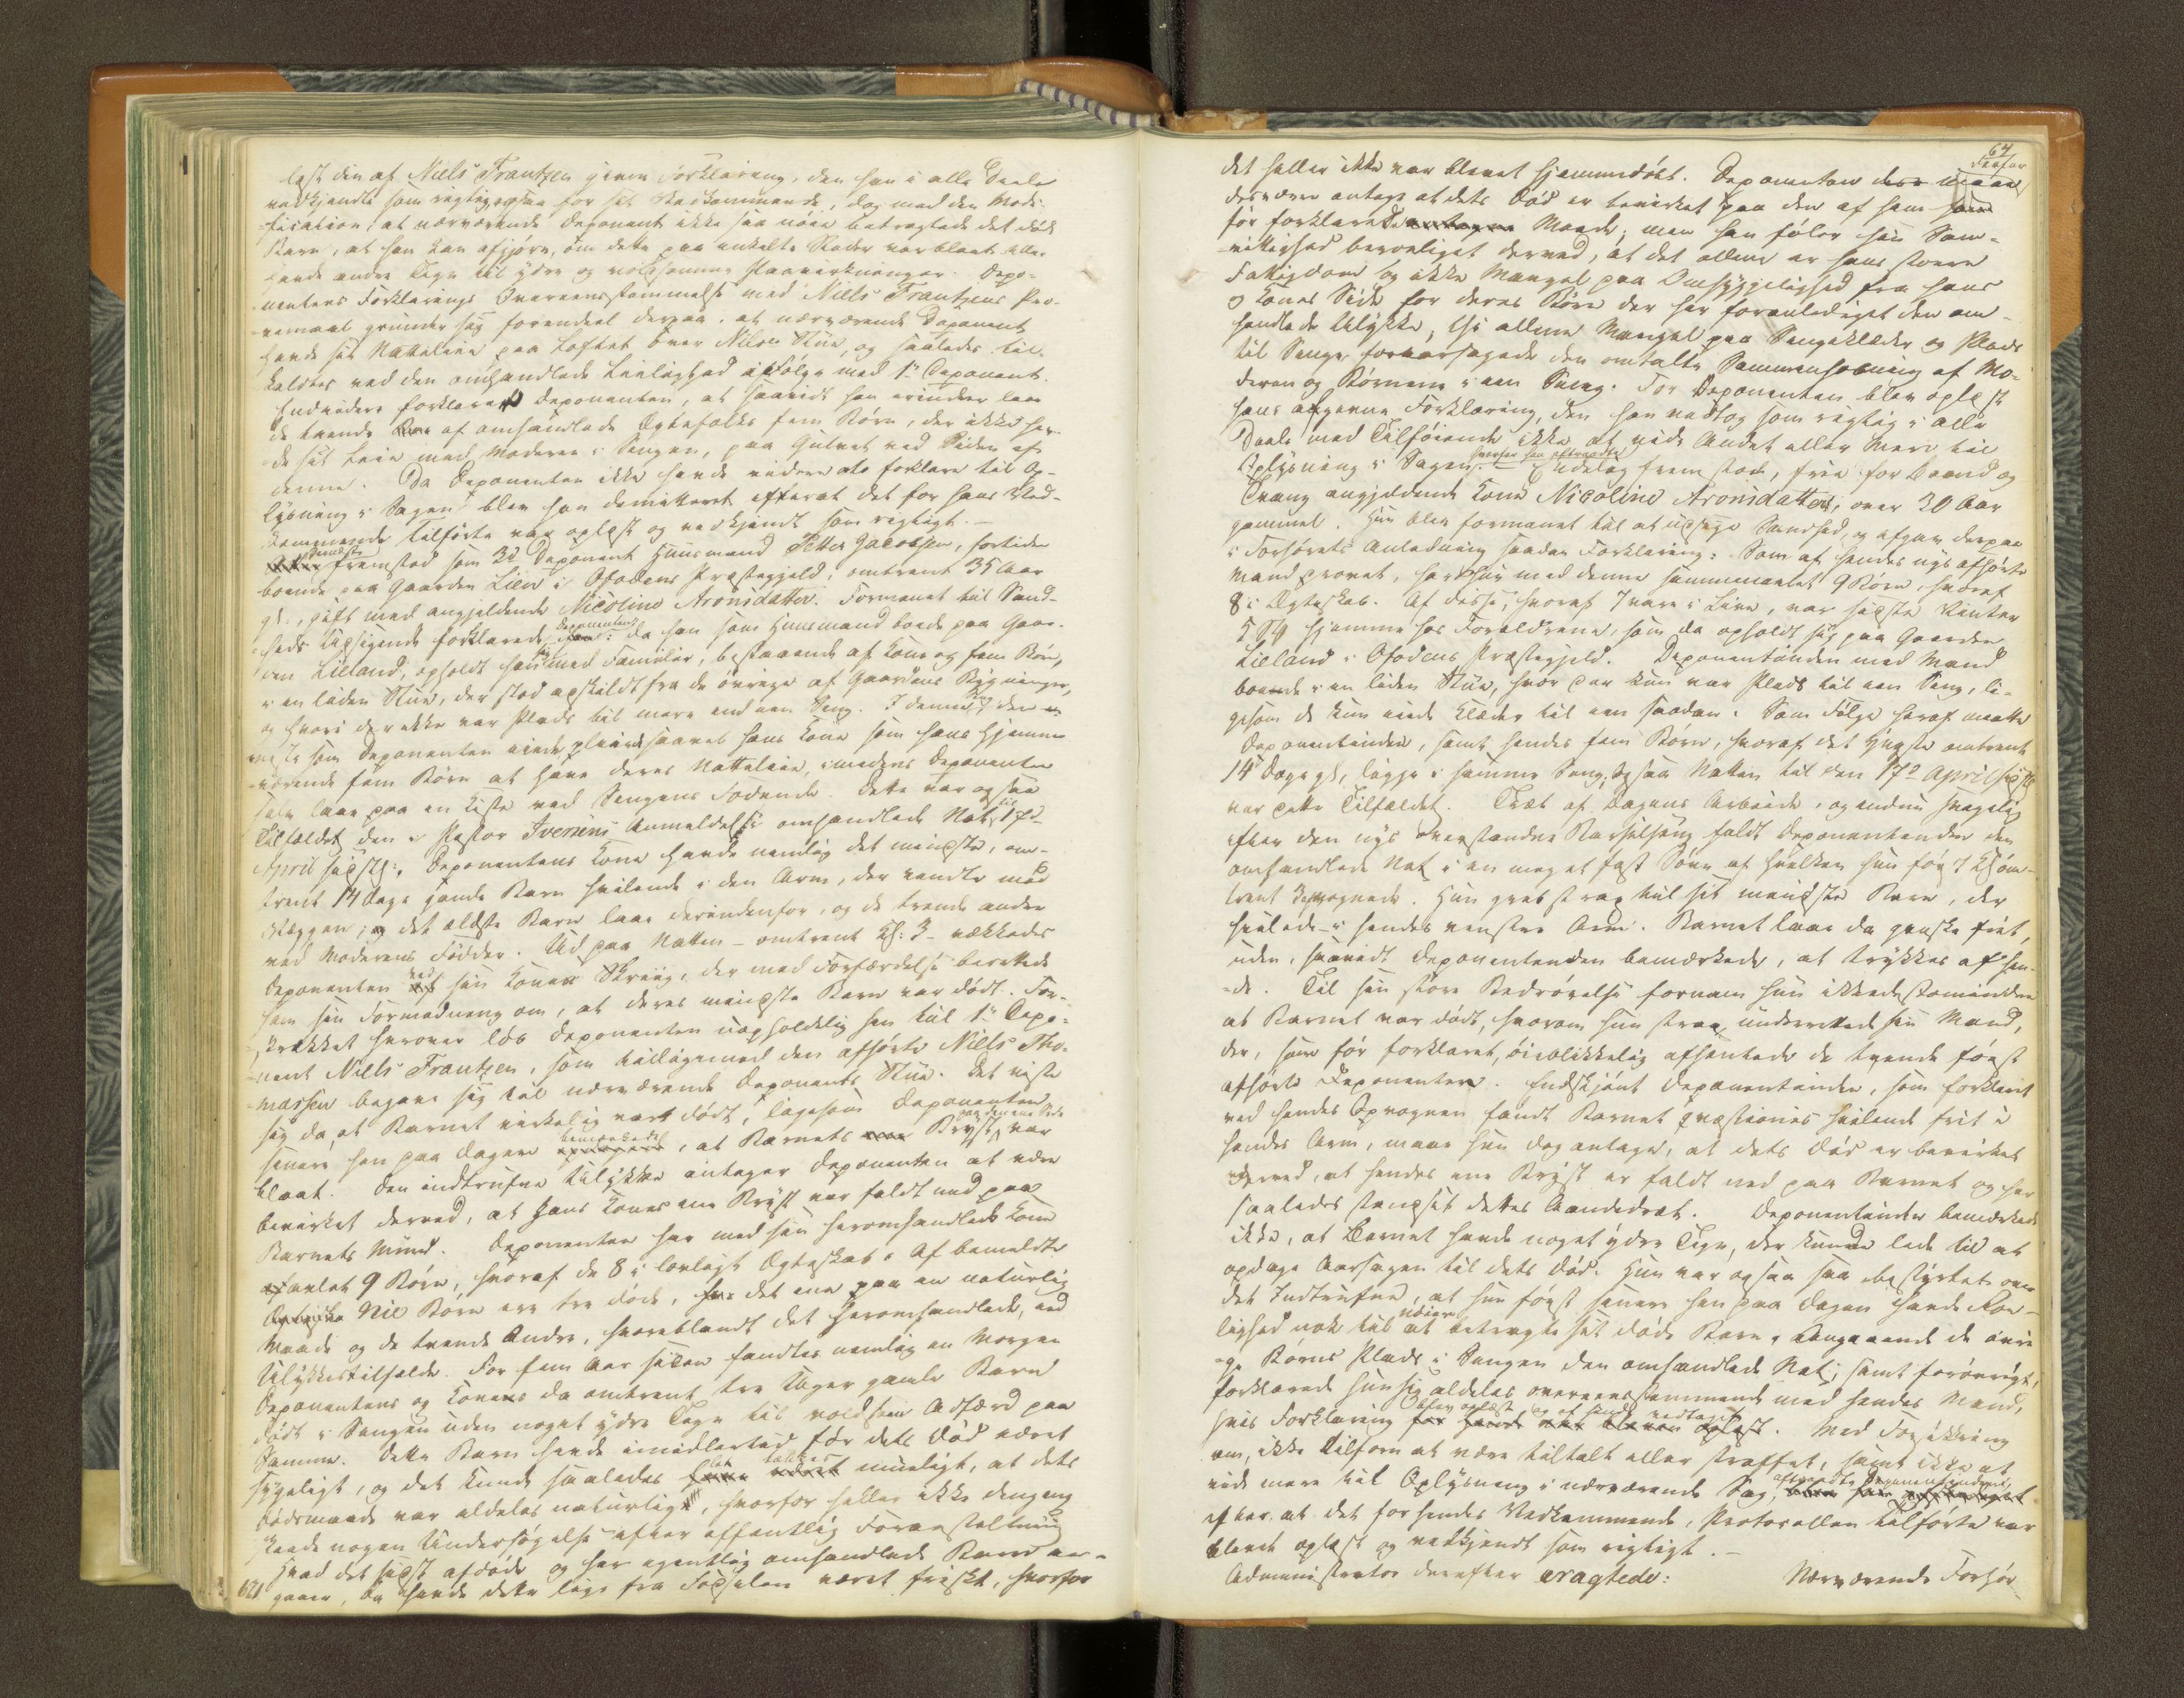 læst den af Niels Frantzen givne Forklaring, den han i alle Deele
vedkjendte som rigtig ogsaa for sit Vedkommende, dog med den Modi-
fication, at nærværende Deponent ikke saa nöie betragtede det døde
Barn, at han kan afgjøre, om dette paa enkelte Steder var blaat eller
havde andre Tegn til ydre og voldsomme Paavirkninger. Depo-
nentens Forklarings Overeensstemmelse med Niels Frantzens Pro-
vemaal grunder sig forendeel derpaa, at nærværende Deponent
havde sit Natteleie paa Loftet over Nilses Stue, og saaledes til-
kaldtes ved den omhandlede Leilighed ifølge med 1ste Deponent.
Endvidere forklarer Deponenten, at saavidt han erindrer laae
de tvende af omhandlede Ægtefolks fem Börn, der ikke hav-
de sit Leie med Moderen i Sengen, paa Gulvet ved Siden af
denne. Da Deponenten ikke havde videre at forklare til Op-
lysning i Sagen blev han demitteret efterat det for hans Ved-
kommende Tilførte var oplæst og vedkjendt som rigtigt. –
dernæst
fremstod som 3d Deponent Huusmand Petter Jacobsen, fortiden
boende paa Gaarden Lien i Ofodens Præstegjeld, omtrent 35 Aar
gl., gift med angjeldende Nicoline Aronsdatter. Formanet til Sand-
Deponenten
heds Udsigende forklarede: da han som Huusmand boede paa Gaar-
den Lieland, opholdt han sig med Familie, bestaaende af Kone og fem Börn,
i en liden Stue, der stod adskildt fra de övrige af Gaardens Bygninger,
og hvori der ikke var Plads til mere end een Seng. I denne Seng den e-
neste som Deponenten eiede pleiede saavel hans Kone som hans hjemme-
værende fem Börn at have deres Natteleie, imedens Deponenten
selv laae paa en Kiste ved Sengens Fodende. Dette var ogsaa
Tilfældet den i Pastor Iversens Anmeldelse omhandlede Nat til 17de
April sidstl:, Deponentens Kone havde nemlig det mindste, om-
trent 14 Dage gamle Barn hvilende i den Arm, der vendte mod
Væggen; og det ældste Barn laae derindenfor, og de tvende andre
ved Moderens Födder. Ud paa Natten – omtrent Kl: 3 – vækkedes
Deponenten ved sin Kones Skriig, der med Forfærdelse berettede
ham sin Formodning om, at deres mindste Barn var dödt. For-
skrækket herover löb Deponenten uopholdelig hen til 1ste Depo-
nent Niels Frantzen, som tilligemed den afhørte Niels Tho-
massen begave sig til nærværende Deponents Stue. Det viste
sig da, at Barnet virkelig var dödt, ligesom Deponenten
bemærkede paa den ene Side
senere hen paa Dagen, at Barnets Bryst var
blaat. Den indtrufne Ulykke antager Deponenten at være
bevirket derved, at hans Kones ene Bryst var faldt ned paa
Barnets Mund. Deponenten har med sin heromhandlede Kone
avlet 9 Börn, hvoraf de 8 i lovligt Ægteskab. Af bemeldte
Nie Börn ere tre döde, det ene paa en naturlig
Maade og de tvende andre, hvoriblandt det heromhandlede, ved
Ulykkestilfælde. For fem Aar siden fandtes nemlig en Morgen
Deponentens og Konens da omtrent tre Uger gamle Barn
dödt i Sengen uden noget ydre Tegn til voldsom Adfærd paa
Samme. Dette Barn havde imidlertid før dets Död været
sygeligt, og det kunde saaledes let tænkes mueligt, at dets
Dödsmaade var aldeles naturlig, hvorfor heller ikke dengang
skeede nogen Undersögelse efter offentlig Foranstaltning
Hvad det sidst afdöde og her egentlig omhandlede Barn an-
gaaer, da havde dette lige fra Födselen været friskt, hvorfor
64
det heller ikke var blevet hjemmedöbt. Deponenten
derfor
desværre antage at dets Död er bevirket paa den af ham
för forklarede Maade; men han föler sin Sam-
vittighed beroeliget derved, at det allene er hans store
Fattigdom og ikke Mangel paa Omhyggelighed fra hans
og Kones Side for deres Börn der har foranlediget den om-
handlede Ulykke, thi allene Mangel paa Sengeklæder og Plads
til Senge foraarsagede den omtalte Sammenhobning af Mo-
deren og Börnene i een Seng. For Deponenten blev oplæst
hans afgivne Forklaring, den han vedtog som rigtig i alle
Deele med Tilföiende ikke at vide Andet eller Mere til
hvorefter han aftraadte
Oplysning i Sagen. – Endelig fremstod, frie for Baand og
Tvang angjeldende Kone Nicoline Aronsdatter, over 30 Aar
gammel. Hun blev formanet til at udsige Sandhed, og afgav derpaa
i Forhörets Anledning saadan Forklaring: Som af hendes nys afhörte
Mand provet, har hun med denne sammenavlet 9 Börn, hvoraf
8 i Ægteskab. Af disse, hvoraf 7 vare i Live, var sidste Vinter
5 Stk hjemme hos Forældrene, som da opholdt sig paa Gaarden
Lieland i Ofodens Præstegjeld. Deponentinden med Mand
boede i en liden Stue, hvor der kun var Plads til een Seng, li-
gesom de kun eiede Klæder til een saadan. Som Fölge heraf maatte
Deponentinden, samt hendes fem Börn, hvoraf det Yngste omtrent
14 Dage gl, ligge i samme Seng, ogsaa Natten til den 17de April sidstl
var dette Tilfældet. Træt af Dagens Arbeide, og endnu svagelig
efter den nys overstandne Barselseng faldt Deponentinden den
omhandlede Nat i en meget fast Sövn af hvilken hun för Kl om-
trent 3 opvognede. Hun greb strax til sit mindste Barn, der
hvilede i hendes venstre Arm. Barnet laae da ganske frit,
uden, saavidt Deponentinden bemærkede, at trykkes af hen-
de. Til sin store Bedrövelse fornam hun ikkedestomindre
at Barnet var dödt, hvorom hun strax underrettede sin Mand,
der, som för forklaret, öieblikkelig afhentede de tvende först
afhörte Deponenter. Endskjönt Deponentinden, som forklaret
ved hendes Opvognen fandt Barnet qvæstionis hvilende frit i
hendes Arm, maae hun dog antage, at dets Död er bevirket
derved, at hendes ene Bryst er faldt ned paa Barnet og har
saaledes standset dettes Aandedræt. Deponentinden bemærkede
ikke, at Barnet havde noget ydre Tegn, der kunde lede til at
opdage Aarsagen til dets Död. Hun var ogsaa saa bestyrtet over
det Indtrufne, at hun först senere hen paa Dagen havde Roe-
nöiere
lighed nok til at betragte sit döde Barn. Angaaende de övri-
ge Börns Plads i Sengen den omhandlede Nat, samt forövrigt,
forklarede hun sig aldeles overeensstemmende med hendes Mand,
blev oplæst og af hende vedtaget
hvis Forklaring. Med Forsikkring
om, ikke tilforn at være tiltalt eller straffet, samt ikke at
aftraadte Deponentinden,
vide mere til Oplysning i nærværende Sag,
efter at det for hendes Vedkommende, Protocollen tilförte var
blevet oplæst og vedkjendt som rigtigt. –
Administrator derefter eragtede: Nærværende Forhör